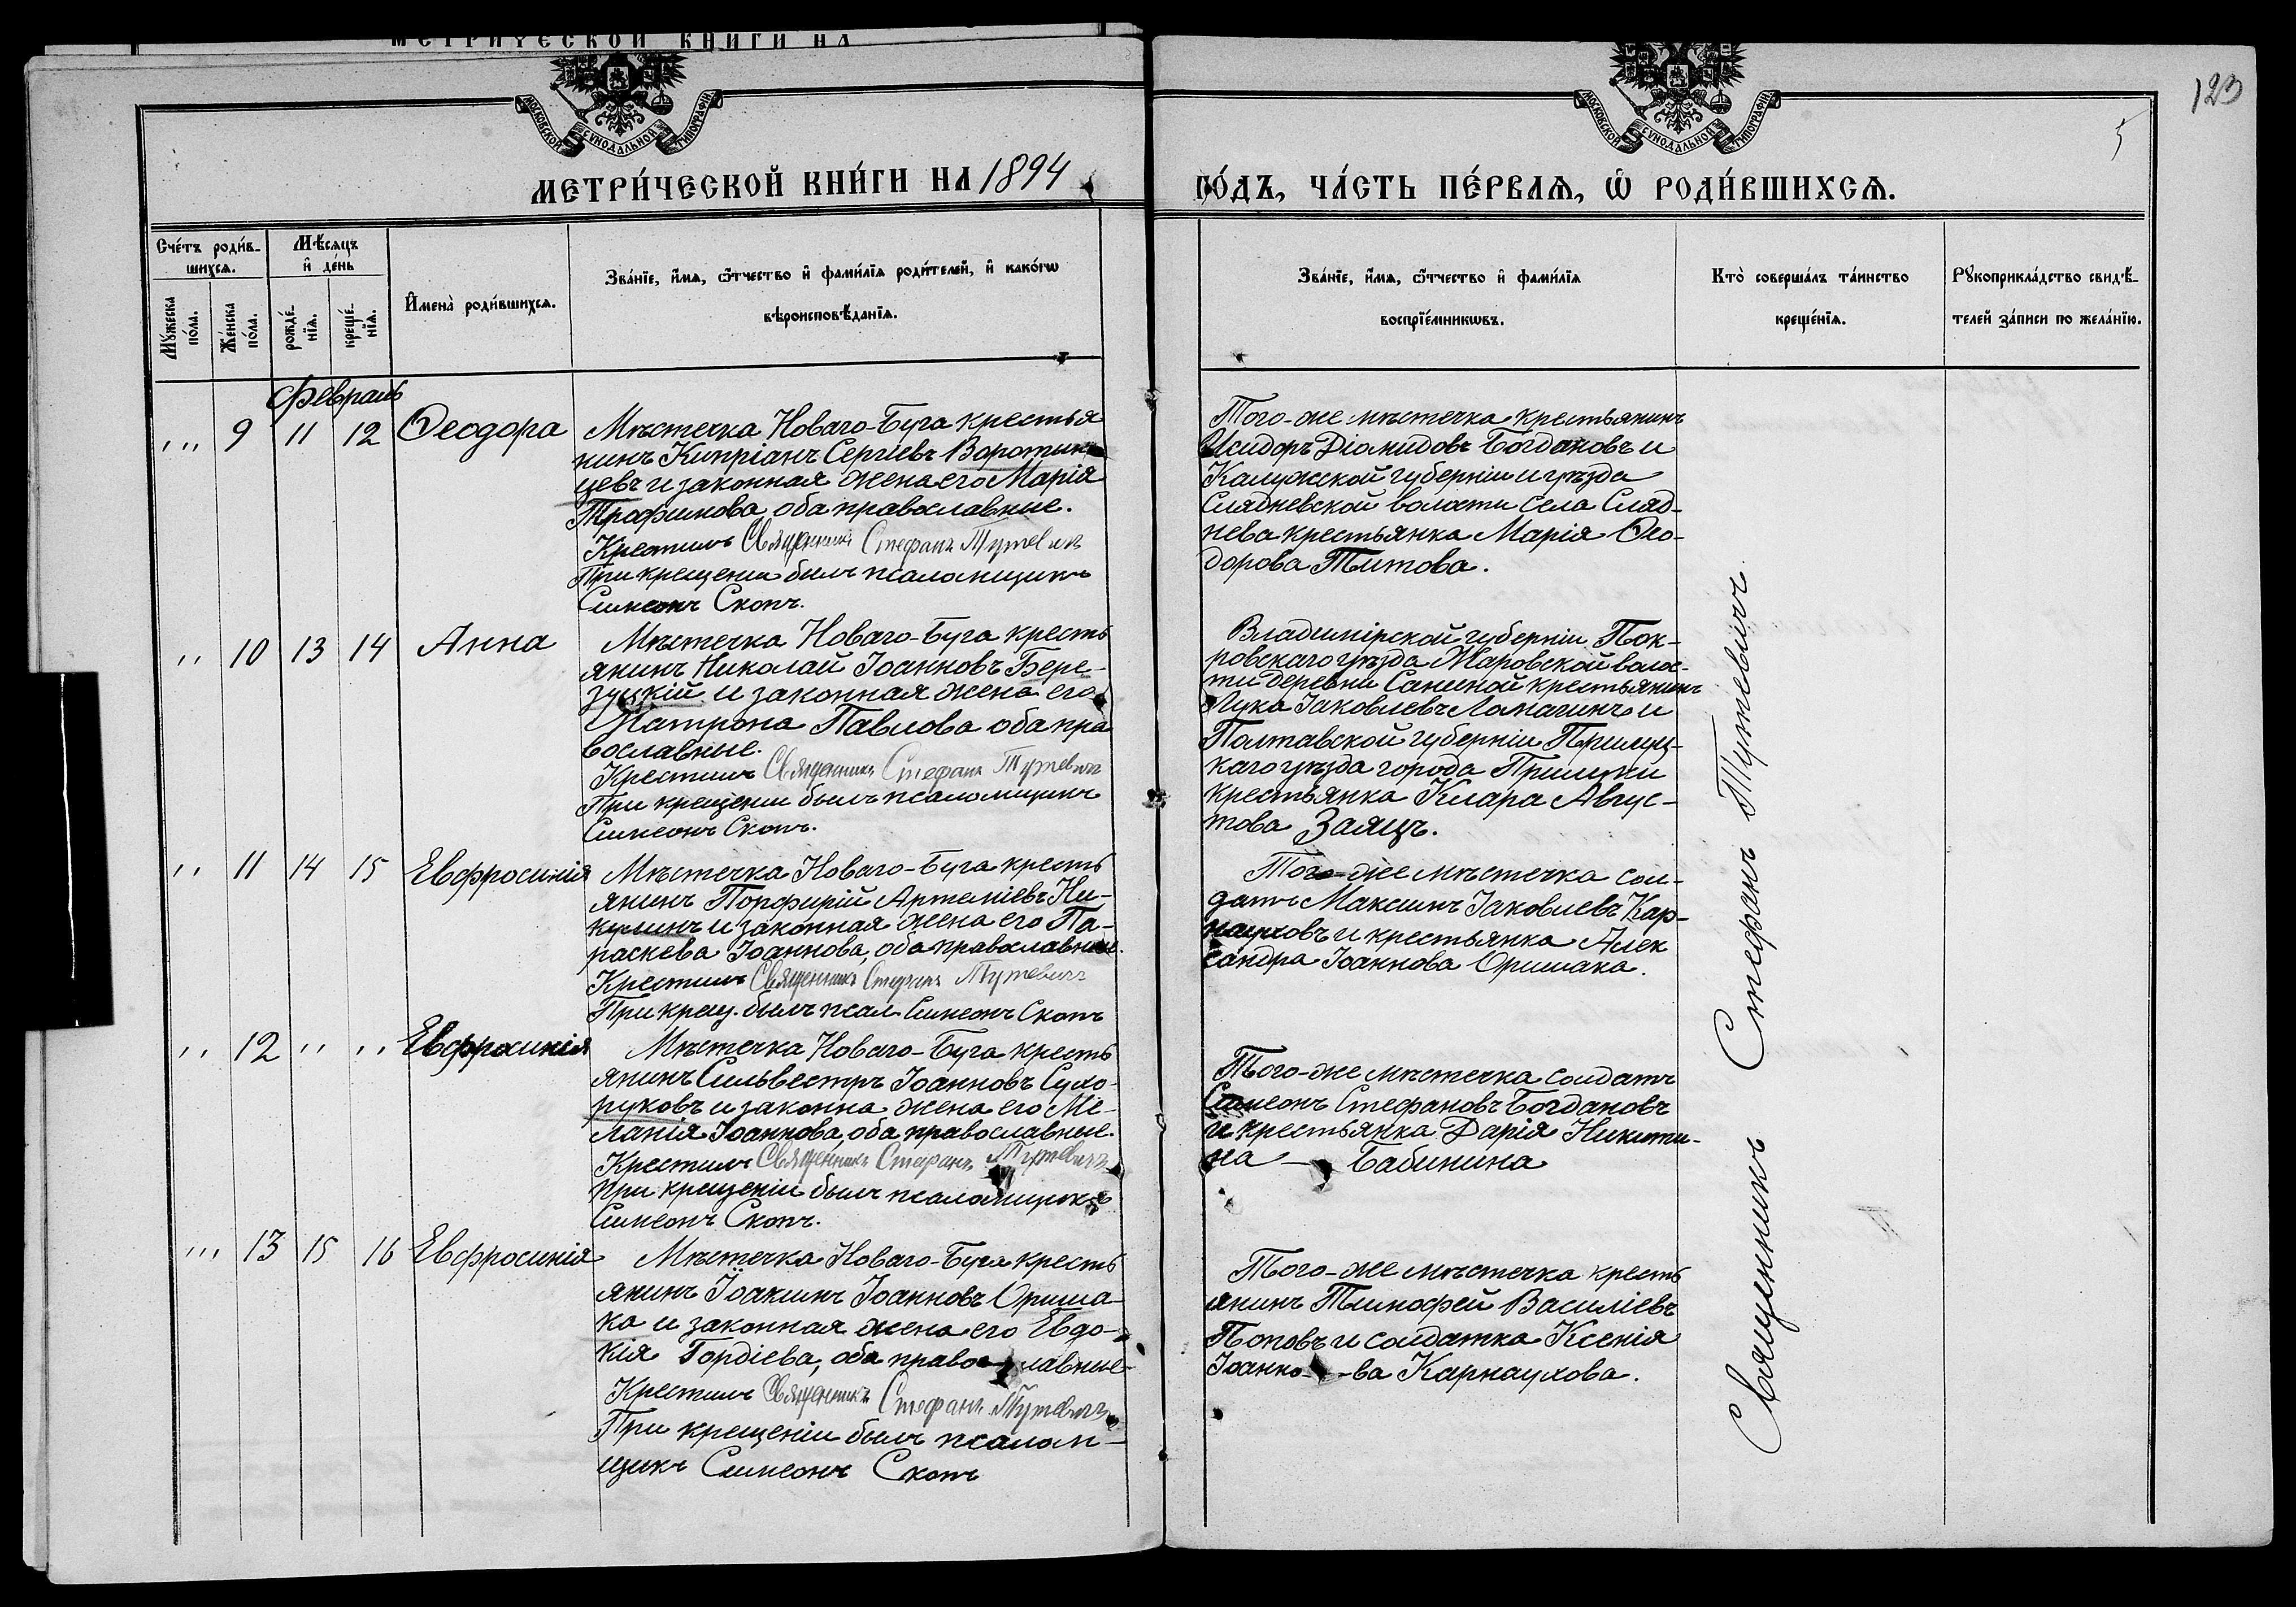 МЕТРИЧЕСКОЙ КНИГИ НА
МОСКОВСКОЙ СѴНОДАЛЬНОЙ ТИПОГРАФІИ
МОСКОВСКОЙ СѴНОДАЛЬНОЙ ТИПОГРАФІИ
123
5
МЕТРИ́ЧЕСКОЙ КНИ́ГИ НА 1894
ГО́ДЪ, ЧА́СТЬ ПЕ́РВАѦ, Ѽ РОДИ́ВШИХСѦ.
Сче́тъ роди́в-
шихсѧ.
Мѣ́сѧцъ
и҆ де́нь
Мꙋ́жеска
по́ла.
Же́нска
по́ла.
рожде́-
нїѧ.
креще́-
нїѧ.
И҆мена̀ роди́вшихсѧ.
Зва́нїе, и҆́мѧ, ѻ҆́тчество и҆ фами́лїѧ роди́телей, и҆ како́гѡ
вѣроисповѣ́данїѧ.
Зва́нїе, и҆́мѧ, ѻ҆́тчество и҆ фами́лїѧ
воспрїе́мникѡвъ.
Кто̀ соверша́лъ та́инство
креще́нїѧ.
Рꙋкоприкла́дство свидѣ́-
телей за́писи по жела́нїю.
Февраль
,,, 9 11 12 Ѳеодора
Мѣстечка Новаго-Буга крестья
нинъ Кипріанъ Сергіевъ Воротын-
цевъ и законная жена его Марія
Трофимова, оба православные.
Крестилъ Священникъ Стефанъ Тутевичъ
При крещеніи былъ псаломщикъ
Симеонъ Скопъ.
Того-же мѣстечка крестьянинъ
Исидоръ Діомидовъ Богдановъ и
Калужской губерніи и уѣзда
Слядневской волости села Сляд-
нева крестьянка Марія Ѳео-
дорова Титова.
,, 10 13 14 Анна
Мѣстечка Новаго-Буга кресть
янинъ Николай Іоанновъ Бере-
зуцкій и законная жена его
Матрона Павлова оба пра
вославные.
Крестилъ Священникъ Стефанъ Тутевичъ
При крещеніи былъ псаломщикъ
Симеонъ Скопъ.
Владимірской губерніи Пок-
ровскаго уѣзда Жаровской волос-
ти деревни Саниной крестьянинъ
Лука Іаковлевъ Ломагинъ и
Полтавской губерніи Прилуц-
каго уѣзда города Прилуки
крестьянка Клара Авгус-
това Заяцъ.
,, 11 14 15 Евфросинія
Мѣстечка Новаго-Буга кресть
янинъ Порфирій Артеміевъ Ни-
кулинъ и законная жена его Па-
раскева Іоаннова, оба православные.
Крестилъ Священникъ Стефанъ Тутевичъ
При крещ. былъ псал. Симеонъ Скопъ
Того-же мѣстечка сол-
датъ Максимъ Іаковлевъ Кар-
науховъ и крестьянка Алек
сандра Іоаннова Оришака.
,, 12 ,, ,, Евфросинія
Мѣстечка Новаго-Буга кресть
янинъ Сильвестръ Іоанновъ Сухо-
руковъ и законна жена его Ме-
ланія Іоаннова, оба православные.
Крестилъ Священникъ Стефанъ Тутевичъ
При крещеніи былъ псаломщикъ
Симеонъ Скопъ.
Того-же мѣстечка солдатъ
Симеонъ Стефановъ Богдановъ
и крестьянка Дарія Никити-
на — Бабинина
,,, 13 15 16 Евфросинія
Мѣстечка Новаго-Буга кресть
янинъ Іоакимъ Іоанновъ Ориша-
ка и законная жена его Евдо-
кія Гордіева, оба православные-
Крестилъ Священникъ Стефанъ Тутевичъ
При крещеніи былъ псалом-
щикъ Симеонъ Скопъ
Того-же мѣстечка кресть
янинъ Тимофей Василіевъ
Поповъ и солдатка Ксенія
Іоанно-ва Карнаухова.
Священникъ Стефанъ Тутевичъ